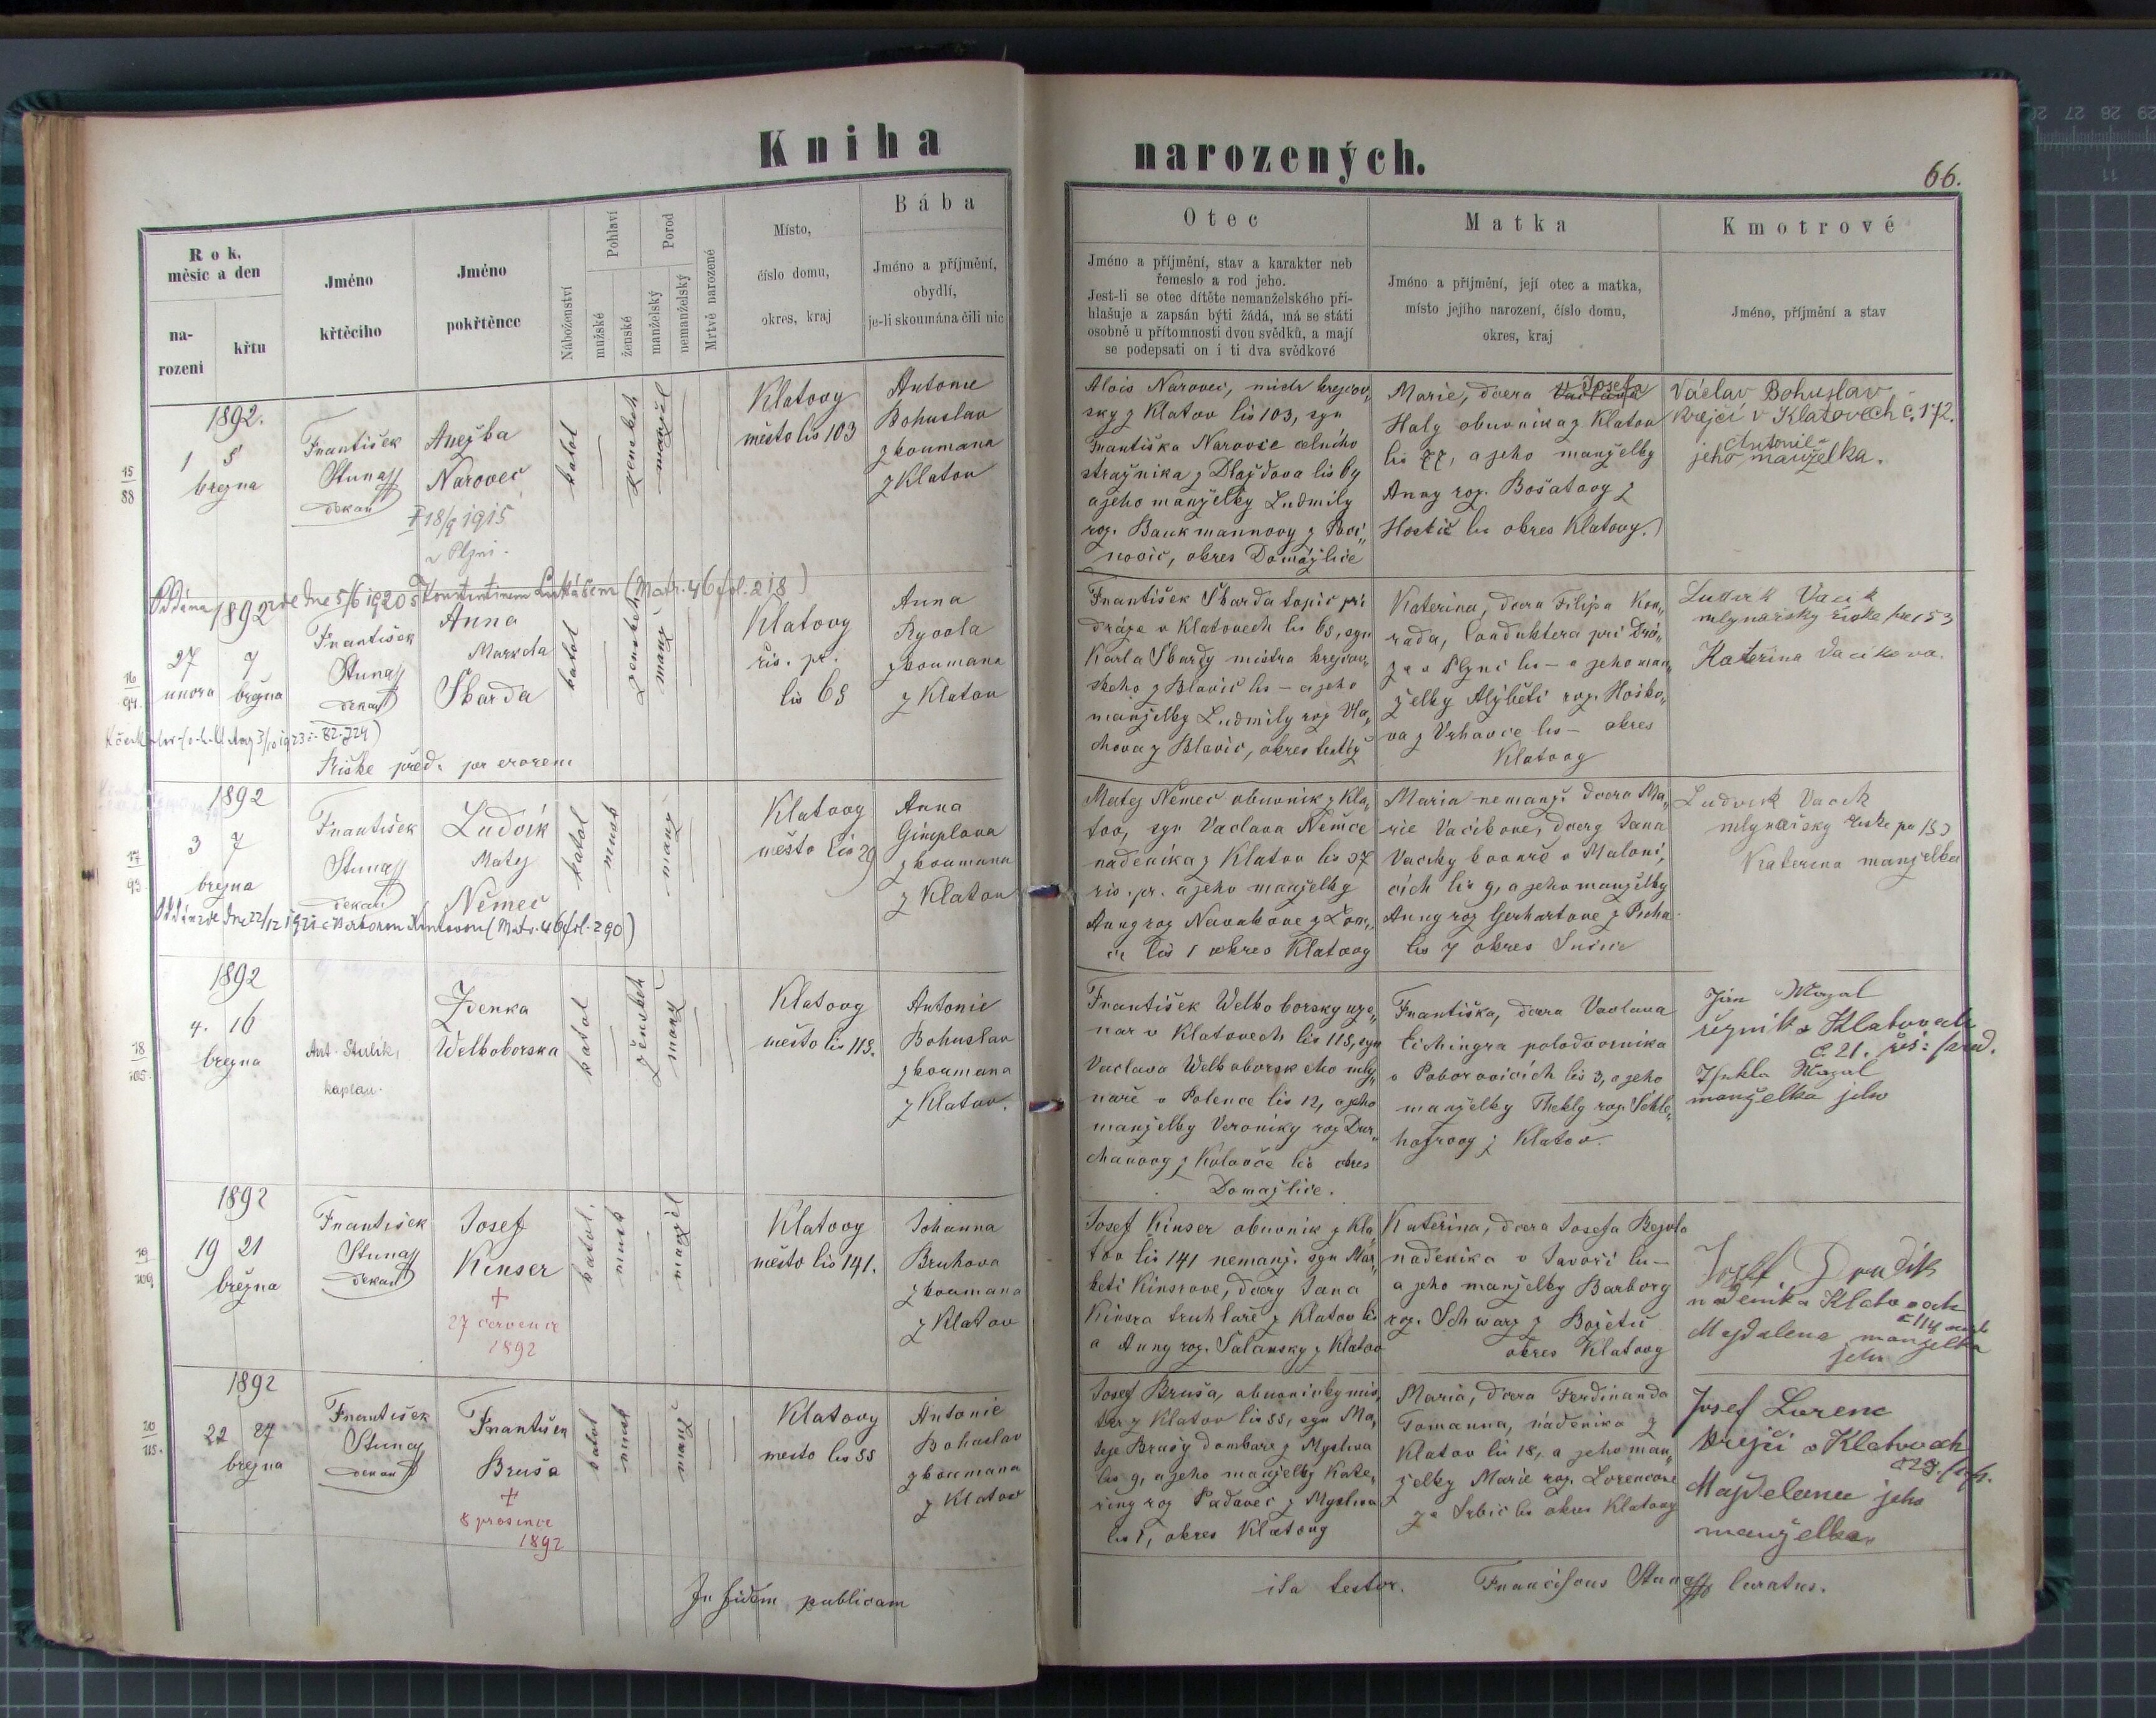 Kniha
narozených.
66.
Rok,
měsíc a den
na-
rození
křtu
Jméno
křtěcího
Jméno
pokřtěnce
Náboženství
Pohlaví
mužské
ženské
Porod
manželský
nemanželský
Mrtvě narozené
Místo,
číslo domu,
okres, kraj
Bába
Jméno a příjmění,
obydlí,
je-li skoumána čili nic
Otec
Jméno a příjmění, stav a karakter neb
řemeslo a rod jeho.
Jest-li se otec dítěte nemanželského při-
hlašuje a zapsán býti žádá, má se státi
osobně u přítomnosti dvou svědků, a mají
se podepsati on i ti dva svědkové
Matka
Jméno a příjmění, její otec a matka,
místo jejího narození, číslo domu,
okres, kraj
Kmotrové
Jméno, příjmění a stav
15
88
1892.
1 5
března
František
Stunaff
děkan
Anežba
Narovec
† 18/8 1915
v Plzni.
katol
ženskeh
manžel
Klatovy
město lis 103
Antonie
Bohuslav
zkoumana
z Klatov
Alois Narovec, mistr krejcov„
sky z Klatov lis 103, syn
Františka Narovce celního
stražnika z Dlažďova lis 69
a jeho manželky Ludmily
roz. Baukmannovy z Poci„
novic, okres Domažlice
Marie, dcera Josefa
Haly obuvnika z Klatov
lis 77, a jeho manželky
Anny roz. Bošatovy z
Hostic lis okres Klatovy.
Václav Bohuslav
Krejčí v Klatovech č. 172.
Antonie
jeho manželka.
16
94.
1892
27 7
unora března
František
Stunaff
děkan
Anna
Marketa
Sbarda
katol
ženskeh
manž
Klatovy
řis. př.
lis 68
Anna
Ryvola
zkoumana
z Klatov
František Sbarda topic při
dráze v Klatovech lis 68, syn
Karla Sbardy mistra krejcov„
skeho z Blovic lis – a jeho
manželky Ludmily roz Vla„
chova z Blovic, okres tentiž
Katerina, dcera Filipa Kon„
rada, konduktera při Drá„
ze v Plzni lis – a jeho man„
želky Alžběti roz. Hosko„
va z Vrhavce lis – okres
Klatovy
Ludvik Vacik
mlynařsky řiske př 153
Katerina Vacikova.
17
93.
1892
3 7
března
František
Stunaff
děkan
Ludvik
Matej
Němec
katol
mužsk
manž
Klatovy
město lis 29
Anna
Gimplova
zkoumana
z Klatov
Matej Němec obuvnik z Kla„
tov, syn Vaclava Němce
nadenika z Klatov lis 37
ris. pr. a jeho manželky
Anny roz Novakove z Lom„
ce lis 1 okres Klatovy
Maria nemanž. dcera Ma„
rie Vacikove, dcery Jana
Vaciky kovaře v Maloni„
cich lis 9, a jeho manželky
Anny roz Gerhartove z Picha
lis 7 okres Sušice
Ludvik Vacik
mlynařsky řiske př 153
Katerina manželka
18
105.
1892
4. 16
března
Ant. Stulik,
kaplan.
Zdenka
Welboborska
katol
ženskeh
manž
Klatovy
město lis 118.
Antonie
Bohuslav
zkoumana
z Klatov.
František Welboborsky uze„
nar v Klatovech lis 118, syn
Vaclava Welboborskeho mly„
naře v Polence lis 12, a jeho
manželky Veroniky roz Dur„
chanovy z Koloveče lis okres
Domažlice.
Františka, dcera Vaclava
Eichingra polodvornika
v Poborovicich lis 3, a jeho
manželky Thekly roz. Schle„
hofrovy z Klatov.
Jan Mazal
řezník v Klatovech
č. 21. řiš: před.
Thekla Mazal
manželka jeho
19
109.
1892
19 21
března
František
Stunaff
děkan
Josef
Kinser
†
27 července
1892
katol.
mužsk
manžel
Klatovy
město lis 141.
Johanna
Bruhova
zkoumana
z Klatov
Josef Kinser obuvnik z Kla„
tov lis 141 nemanž. syn Mar„
keti Kinsrove, dcery Jana
Kinsra truhlaře z Klatov lis
a Anny roz. Salansky z Klatov
Katerina, dcera Josefa Bejvla
nadenika v Javoři lis –
a jeho manželky Barbory
roz. Schwarz z Božetic
okres Klatovy
nadenik v Klatovech
č 114
Majdalena manželka
jeho
20
115.
1892
22 27
března
František
Stunaff
děkan
František
Bruša
†
8 prosince
1892
katol
mužsk
manž
Klatovy
mesto lis 55
Antonie
Bohuslav
zkoumana
z Klatov
Josef Bruša, obuvnicky mis„
ter z Klatov lis 55, syn Ma„
teje Brušy domkare z Mysliva
lis 9, a jeho manželky Kate„
riny roz Padavec z Mysliva
lis 1, okres Klatovy
Maria, dcera Ferdinanda
Tomanna, nádenika z
Klatov lis 18, a jeho man„
želky Marie roz. Lorencove
ze Srbic lis okres Klatovy
Josef Lorenc
Krejči v Klatovech
Majdelena jeho
manželka„
In fidem publicam
ita testor. Franciscus Stunaff Curatus.